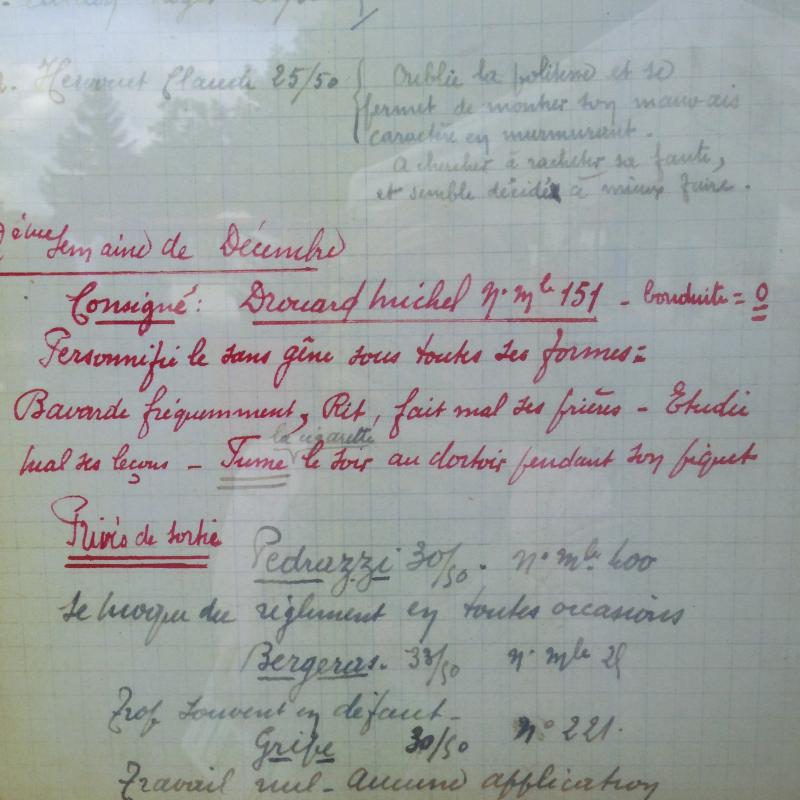 Claude 25/50 { Oublie la politesse et se
permet de montrer son mauvais
caractère en murmurant.
A chercher à racheter sa faute,
et semble décidé à mieux faire.
2ème Semaine de Décembre
Consigné: Drouard Michel N. Mle 151 - Conduite = 0
Personnifie le sans gêne sous toutes ses formes =
Bavarde fréquemment, Rit, fait mal ses prières - Etudie
la cigarette
mal ses leçons - Fume le soir au dortoir pendant son piquet
Privés de sortie
Pedrazzi 30/50. N° Mle 400
se moque du règlement en toutes occasions
Bergeras. 33/50 N° Mle
Trop souvent en défaut -
Grife 30/50 N° 221.
Travail nul - Aucune application